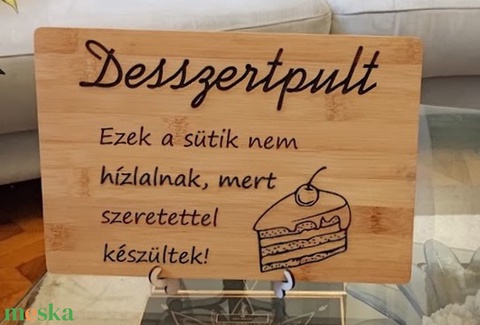 Desszertpult
Ezek a sütik nem
hízlalnak, mert
szeretettel
készültek!
meska